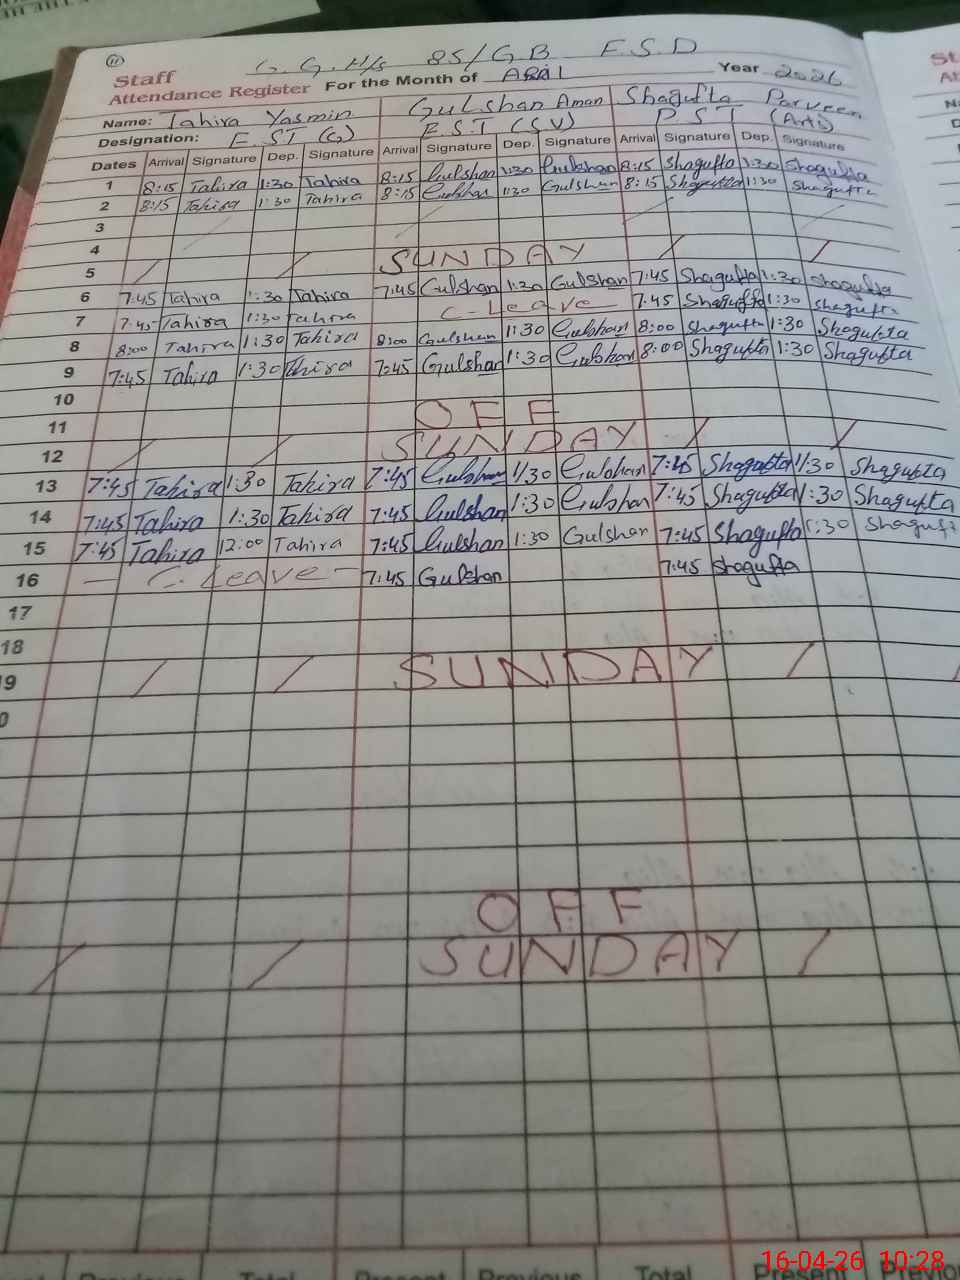 11
G. G. H/S 85/GB F.S.D
Staff
Attendance Register For the Month of APRIL Year 2026
Name: Tahira Yasmin Gulshan Aman Shagufta Parveen
Designation: E.ST (G) E.S.T (SV) P.S.T (Arts)
Dates Arrival Signature Dep. Signature Arrival Signature Dep. Signature Arrival Signature Dep. Signature
1 8:15 Tahira 1:30 Tahira 8:15 Gulshan 1:30 Gulshan 8:15 Shagufta 1:30 Shagufta
2 8:15 Tahira 1:30 Tahira 8:15 Gulshan 1:30 Gulshan 8:15 Shagufta 1:30 Shagufta
3
4
5 SUNDAY
6 7:45 Tahira 1:30 Tahira 7:45 Gulshan 1:30 Gulshan 7:45 Shagufta 1:30 Shagufta
7 7:45 Tahira 1:30 Tahira C-Leave 7:45 Shagufta 1:30 Shagufta
8 8:00 Tahira 1:30 Tahira 8:00 Gulshan 1:30 Gulshan 8:00 Shagufta 1:30 Shagufta
9 7:45 Tahira 1:30 Tahira 7:45 Gulshan 1:30 Gulshan 8:00 Shagufta 1:30 Shagufta
10
11 OFF
12 SUNDAY
13 7:45 Tahira 1:30 Tahira 7:45 Gulshan 1:30 Gulshan 7:45 Shagufta 1:30 Shagufta
14 7:45 Tahira 1:30 Tahira 7:45 Gulshan 1:30 Gulshan 7:45 Shagufta 1:30 Shagufta
15 7:45 Tahira 12:00 Tahira 7:45 Gulshan 1:30 Gulshan 7:45 Shagufta 1:30 Shaguft
16 — C. Leave — 7:45 Gulshan 7:45 Shagufta
17
18
9 SUNDAY
0
OFF
SUNDAY
Total Present Previous Total Present Previou
16-04-26 10:28